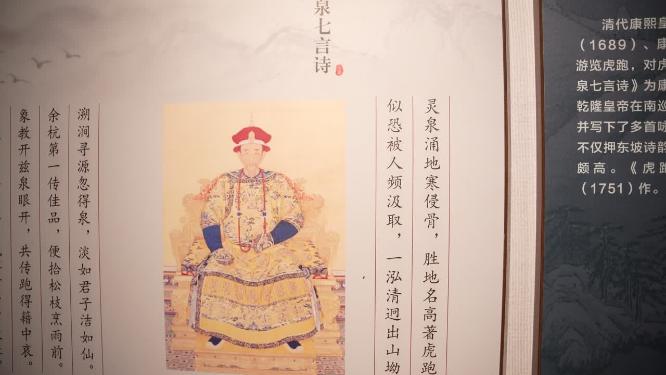 泉七言诗
灵泉涌地寒侵骨，胜地名高著虎跑
似恐被人频汲取，一泓清迥出山坳
溯涧寻源忽得泉，淡如君子洁如仙。
余杭第一传佳品，便拾松枝烹雨前。
象教开兹泉眼开，共传跑得籍中哀。
清代康熙皇
（1689）、康
游览虎跑，对虎
泉七言诗》为康
乾隆皇帝在南巡
并写下了多首咏
不仅押东坡诗韵
颇高。《虎跑
（1751）作。